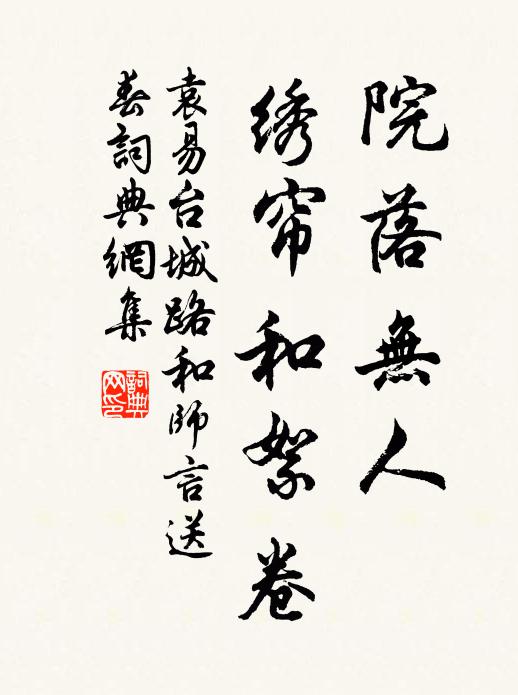 院落無人
绣帘和絮卷
袁易台城路和師言送
春詞典網集
詞典
网印